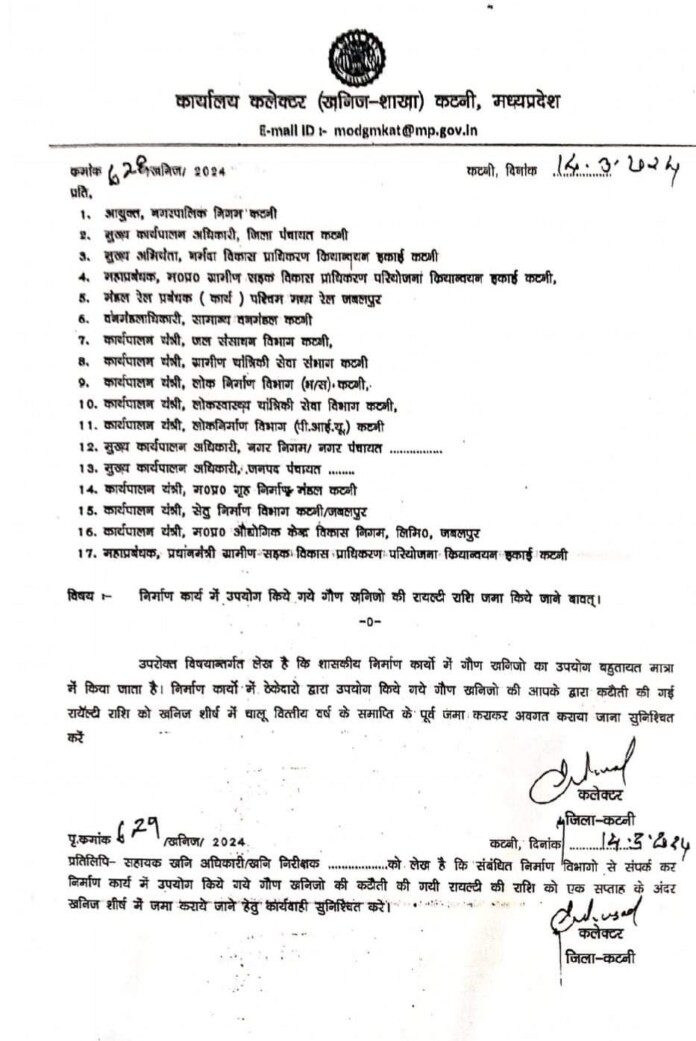 कार्यालय कलेक्टर (खनिज-शाखा) कटनी, मध्यप्रदेश
E-mail ID :- modgmkat@mp.gov.in
कमांक 628/खनिज/ 2024 कटनी, दिनांक 14.3.2024
प्रति,
1. आयुक्त, नगरपालिक निगम कटनी
2. मुख्य कार्यपालन अधिकारी, जिला पंचायत कटनी
3. मुख्य अभियंता, नर्मदा विकास प्राधिकरण कियान्वयन इकाई कटनी
4. महाप्रबंधक, म०प्र० ग्रामीण सड़क विकास प्राधिकरण परियोजना कियान्वयन इकाई कटनी,
5. मंडल रेल प्रबंधक ( कार्य ) पश्चिम मध्य रेल जबलपुर
6. वनमंडलाधिकारी, सामान्य वनमंडल कटनी
7. कार्यपालन यंत्री, जल संसाधन विभाग कटनी,
8. कार्यपालन यंत्री, ग्रामीण यांत्रिकी सेवा संभाग कटनी
9. कार्यपालन यंत्री, लोक निर्माण विभाग (भ/स) कटनी,
10. कार्यपालन यंत्री, लोकस्वास्थ्य यांत्रिकी सेवा विभाग कटनी,
11. कार्यपालन यंत्री, लोकनिर्माण विभाग (पी.आई.यू.) कटनी
12. मुख्य कार्यपालन अधिकारी, नगर निगम/ नगर पंचायत ...............
13. मुख्य कार्यपालन अधिकारी, जनपद पंचायत ........
14. कार्यपालन यंत्री, म०प्र० गृह निर्माण मंडल कटनी
15. कार्यपालन यंत्री, सेतु निर्माण विभाग कटनी/जबलपुर
16. कार्यपालन यंत्री, म०प्र० औद्योगिक केन्द्र विकास निगम, लिमि०, जबलपुर
17. महाप्रबंधक, प्रधानमंत्री ग्रामीण सड़क विकास प्राधिकरण परियोजना कियान्वयन इकाई कटनी
विषय :- निर्माण कार्य में उपयोग किये गये गौण खनिजो की रायल्टी राशि जमा किये जाने बावत्।
-0-
उपरोक्त विषयान्तर्गत लेख है कि शासकीय निर्माण कार्यो में गौण खनिजो का उपयोग बहुतायत मात्रा
में किया जाता है। निर्माण कार्यो में ठेकेदारो द्वारा उपयोग किये गये गौण खनिजो की आपके द्वारा कटौती की गई
रायॅल्टी राशि को खनिज शीर्ष में चालू वित्तीय वर्ष के समाप्ति के पूर्व जमा कराकर अवगत कराया जाना सुनिश्चित
करें
कलेक्टर
जिला-कटनी
पृ.कमांक 629 /खनिज/ 2024 कटनी, दिनांक 14.3.2024
प्रतिलिपि- सहायक खनि अधिकारी/खनि निरीक्षक ..................को लेख है कि संबंधित निर्माण विभागो से संपर्क कर
निर्माण कार्य में उपयोग किये गये गौण खनिजो की कटौती की गयी रायल्टी की राशि को एक सप्ताह के अंदर
खनिज शीर्ष में जमा कराये जाने हेतु कार्यवाही सुनिश्चित करे।
कलेक्टर
जिला-कटनी